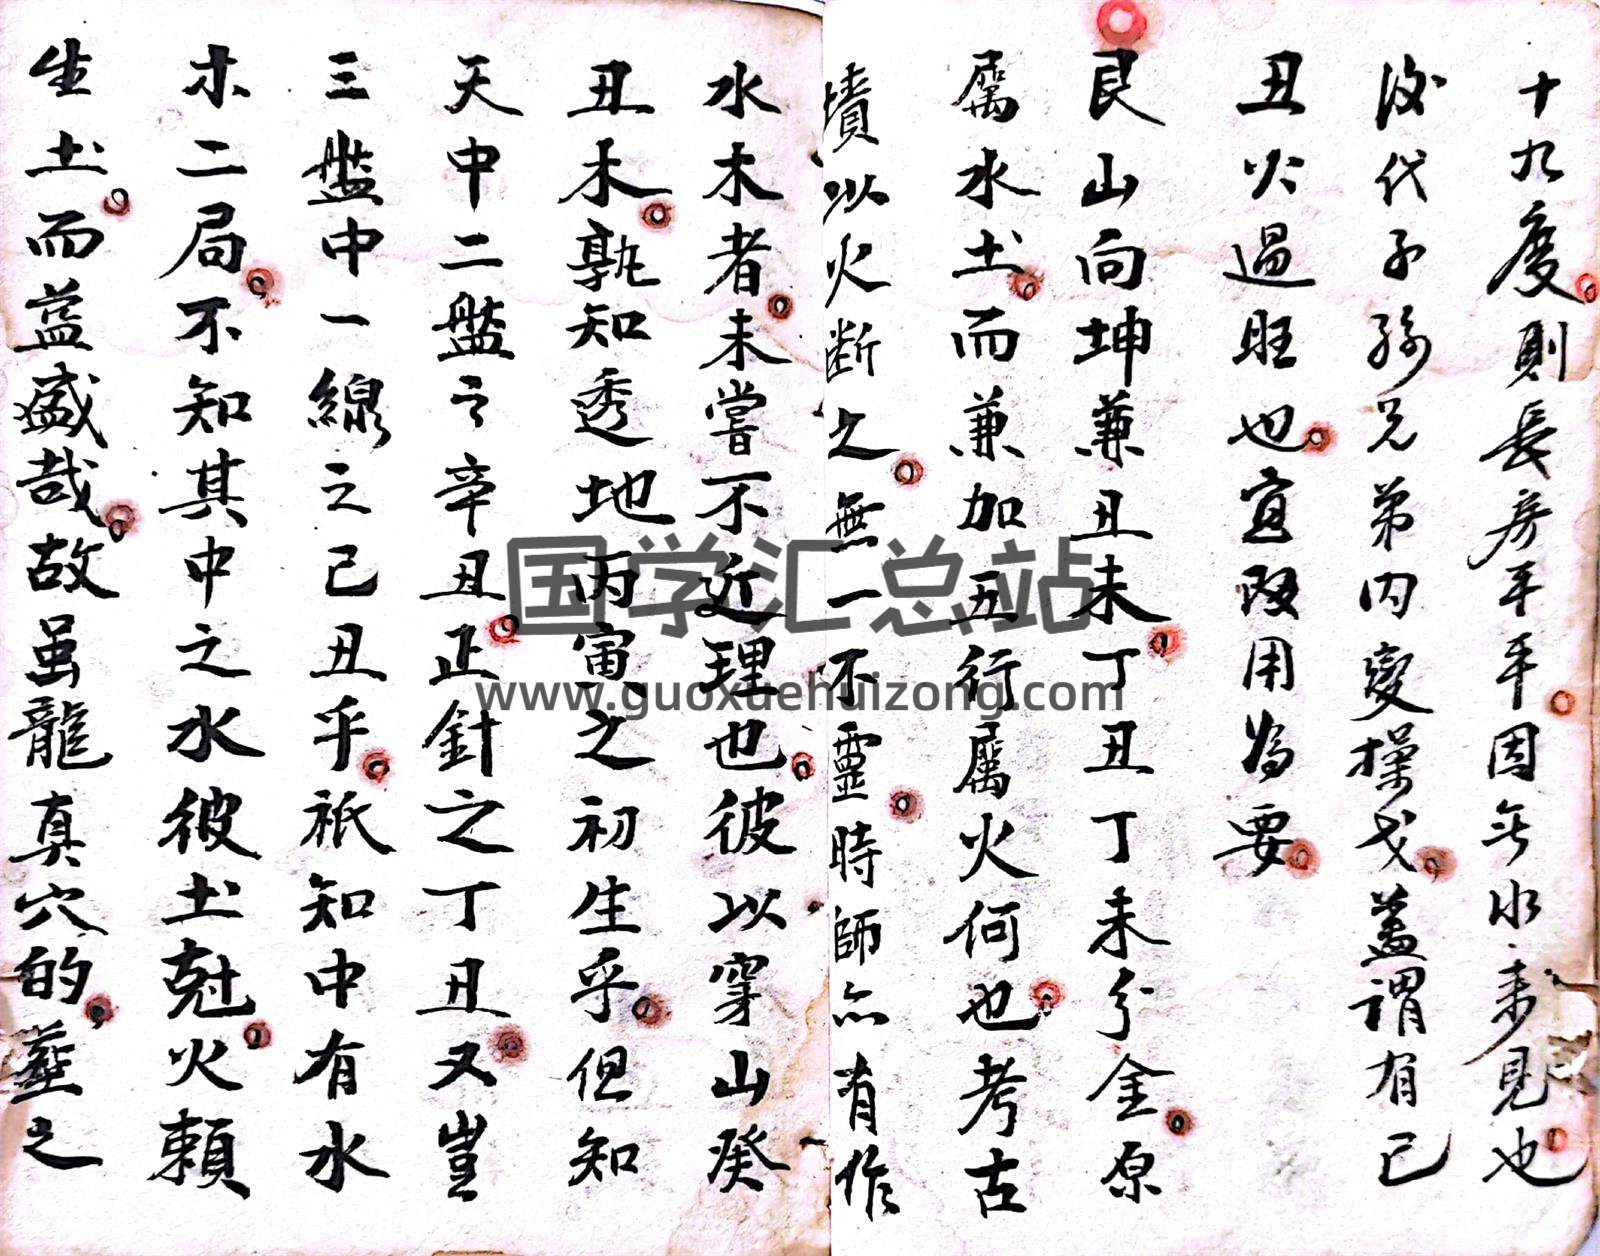 十九度則長房平平因無水来見也
後代子孫兄弟内变操戈盖謂有己
丑火過旺也宜改用為要
艮山向坤兼丑未丁丑丁未分金原
属水土而兼加五行属火何也考古
墳以火断之無一不靈時師亦有作
水木者未嘗不近理也彼以穿山癸
丑木孰知透地丙寅之初生乎但知
天中二盤之辛丑正針之丁丑又豈
三盤中一線之己丑乎祇知中有水
木二局不知其中之水彼土尅火賴
生土而益盛哉故虽龍真穴的塟之
国学汇总站
www.guoxuehuizong.com